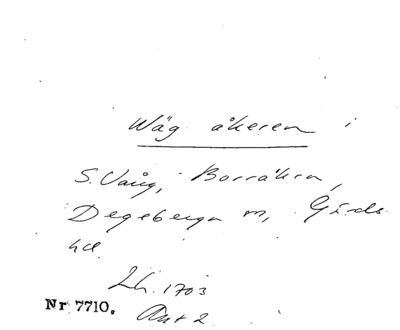 Wäg åkeren i
S. Vång, Borråkra,
Degeberga sn, Gärds
hd.
Lh. 1703
Ant 2
Nr 7710.